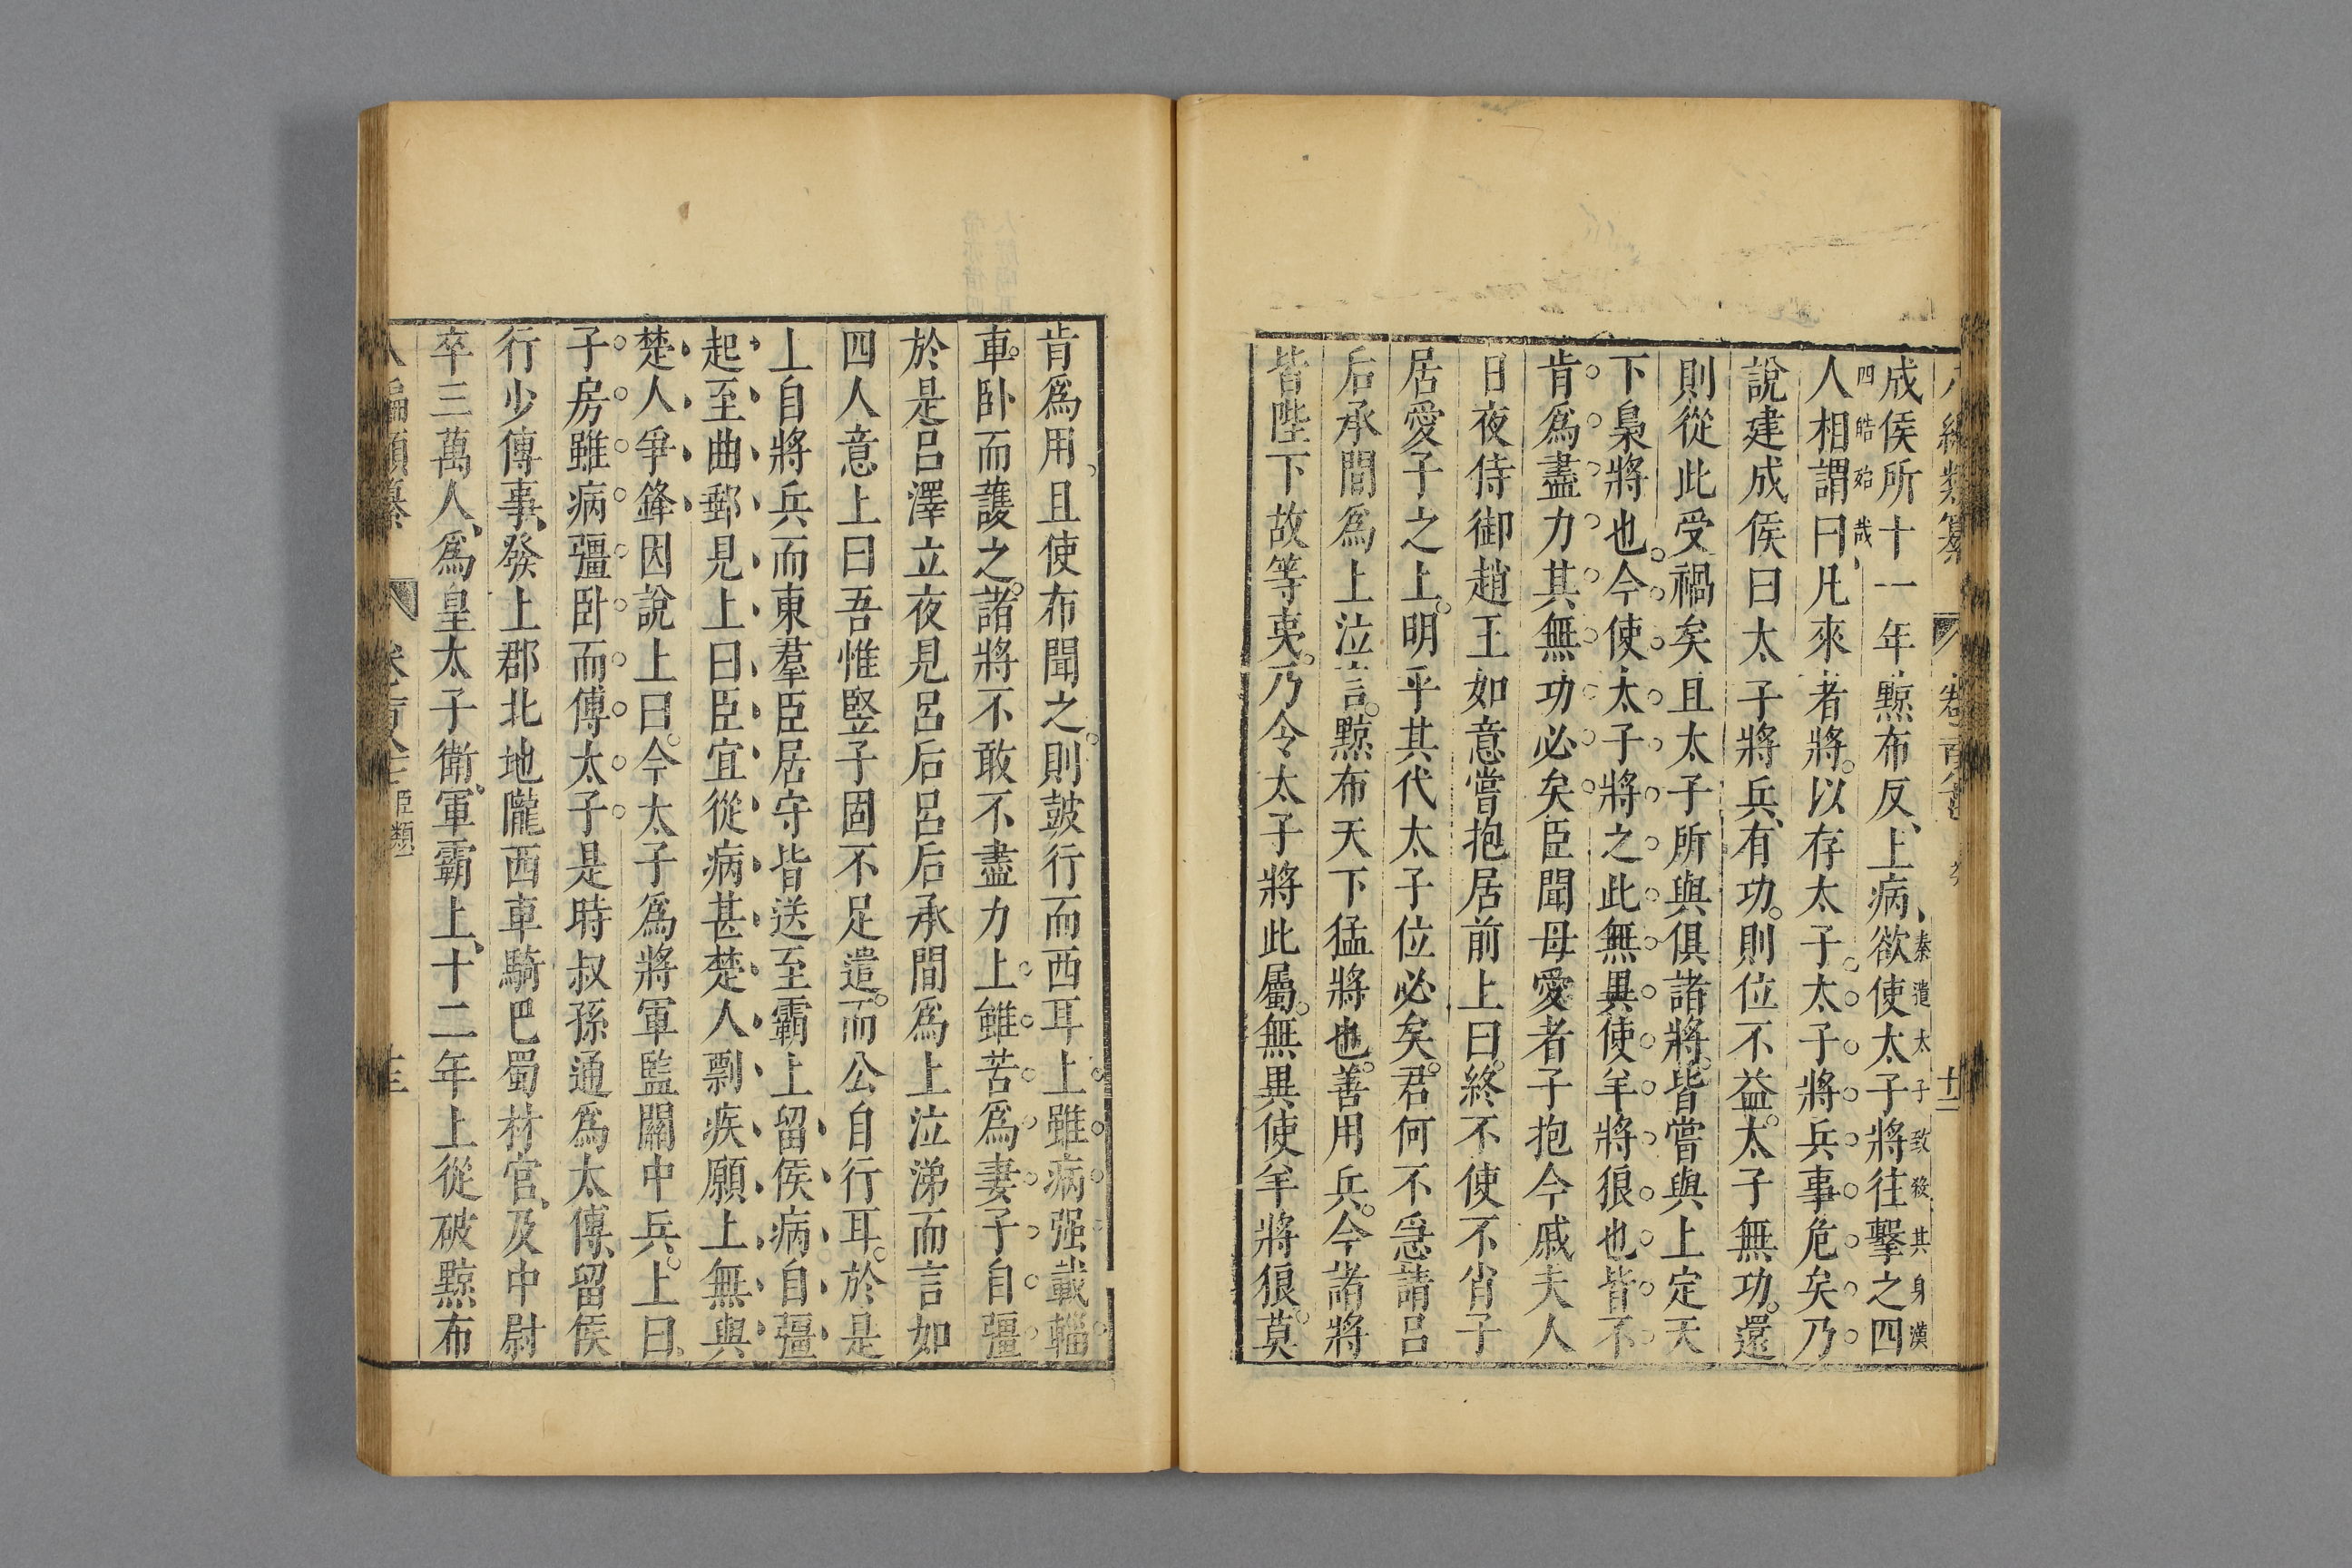 成侯所十一年黥布反上病欲使太子將往擊之四
秦遣太子致發其身漢
四皓殆哉
人相謂曰凡來者將以存太子太子將兵事危矣乃
說建成侯曰太子將兵有功則位不益太子無功還
則從此受禍矣且太子所與俱諸將皆嘗與上定天
下梟將也今使太子將之此無異使羊將狼也皆不
肯爲盡力其無功必矣臣聞母愛者子抱今戚夫人
日夜侍御趙王如意嘗抱居前上曰終不使不肖子
居愛子之上明乎其代太子位必矣君何不急請呂
后承間爲上泣言黥布天下猛將也善用兵今諸將
皆陛下故等夷乃令太子將此屬無異使羊將狼莫
肯爲用且使布聞之則鼓行而西耳上雖病强載輜
車卧而護之諸將不敢不盡力上雖苦爲妻子自彊
於是呂澤立夜見呂后呂后承間爲上泣涕而言如
四人意上曰吾惟竪子固不足遣而公自行耳於是
上自將兵而東羣臣居守皆送至霸上留侯病自彊
起至曲郵見上曰臣宜從病甚楚人剽疾願上無與
楚人爭鋒因說上曰今太子爲將軍監關中兵上曰
子房雖病彊卧而傅太子是時叔孫通爲太傅留侯
行少傅事發上郡北地隴西車騎巴蜀材官及中尉
卒三萬人爲皇太子衛軍霸上十二年上從破黥布